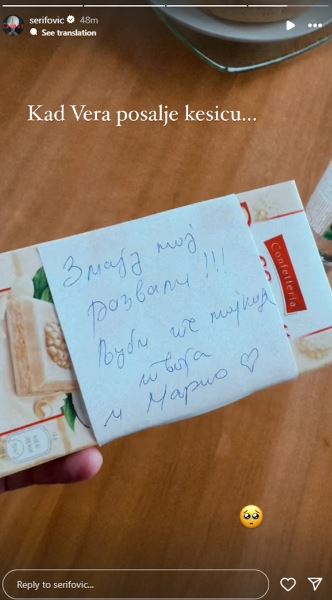 serifovic 48m
See translation
Kad Vera posalje kesicu...
Змају мој
развали !!!
Љуби те мајка
твоја
и Марио ♡
Confetteria
Reply to serifovic...